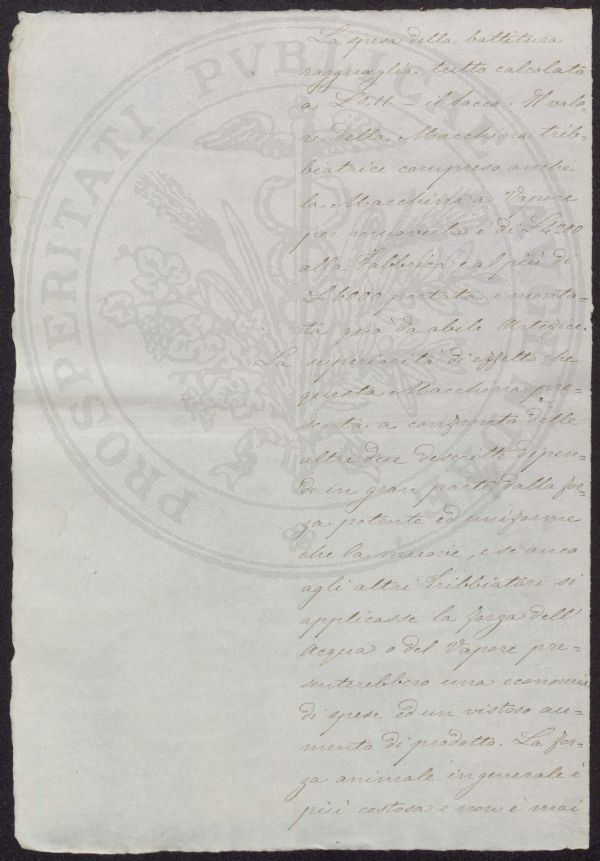 La spesa della battitura
ragguaglia tutto calcolato
a £0.11.- il sacco. Il valo=
re della Macchina treb=
biatrice compreso anche
la Macchina a Vapore
per muoverla è di £4200
alla Fabbrica e al più di
£6000 portata e monta=
ta qua da abile Artefice.
La superiorità di effetto che
questa Macchina pre=
senta a confronto delle
altre due descritte dipen=
de in gran parte dalla for=
za potente ed uniforme
che la muove, e se anco
agli altri Tribbiatori si
applicasse la forza dell'
Acqua o del Vapore pre=
senterebbero una economia
di spese ed un vistoso au=
mento di prodotto. La for=
za animale in generale è
più costosa e non è mai
PROSPERITATI PVBLICAE